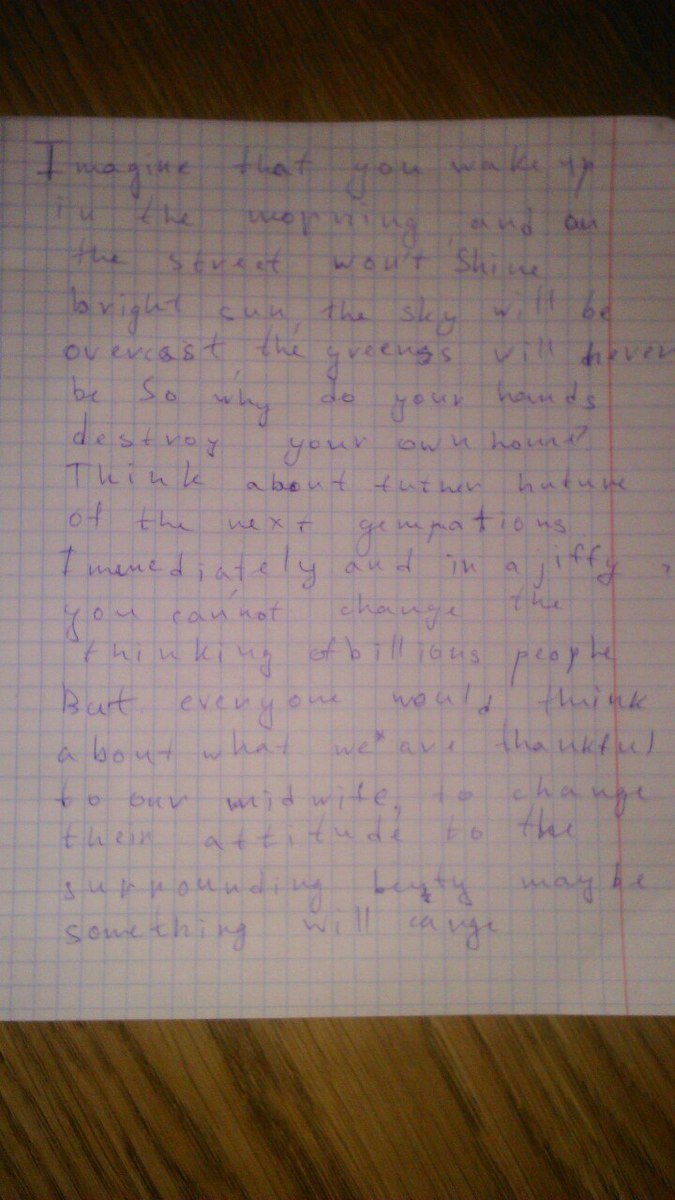 Imagine that you wake up
in the morning, and on
the street won't Shine
bright sun, the sky will be
overcast, the greens will never
be So why do your hands
destroy your own home?
Think about future
of the next generations
Immediately and in a jiffy,
you cannot change the
thinking of billions people
But everyone would think
about what we are thankful
to our midwife, to change
their attitude to the
surrounding beuty may be
something will cange